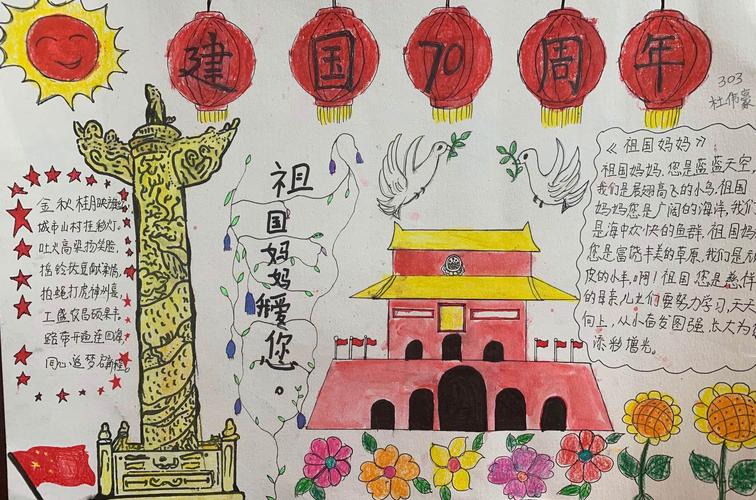 建国70周年
303
杜伟豪
祖国妈妈我爱您。
金秋桂月映
城市山村挂彩灯。
吐火高梁扬笑脸,
拍蝇打虎神州
工盛农昌硕果丰
同心追梦
《祖国妈妈》
祖国妈妈,您是蓝蓝天空,
我们是展翅高飞的小鸟,祖国
妈妈您是广阔的海洋,我们
是海中欢快的鱼群,祖国妈
您是富饶丰美的草原,我们是
皮的小羊,啊!祖国您是慈
的母亲儿女们要努力学习,天天
向上,从小奋发图强,长大为
添彩增光。